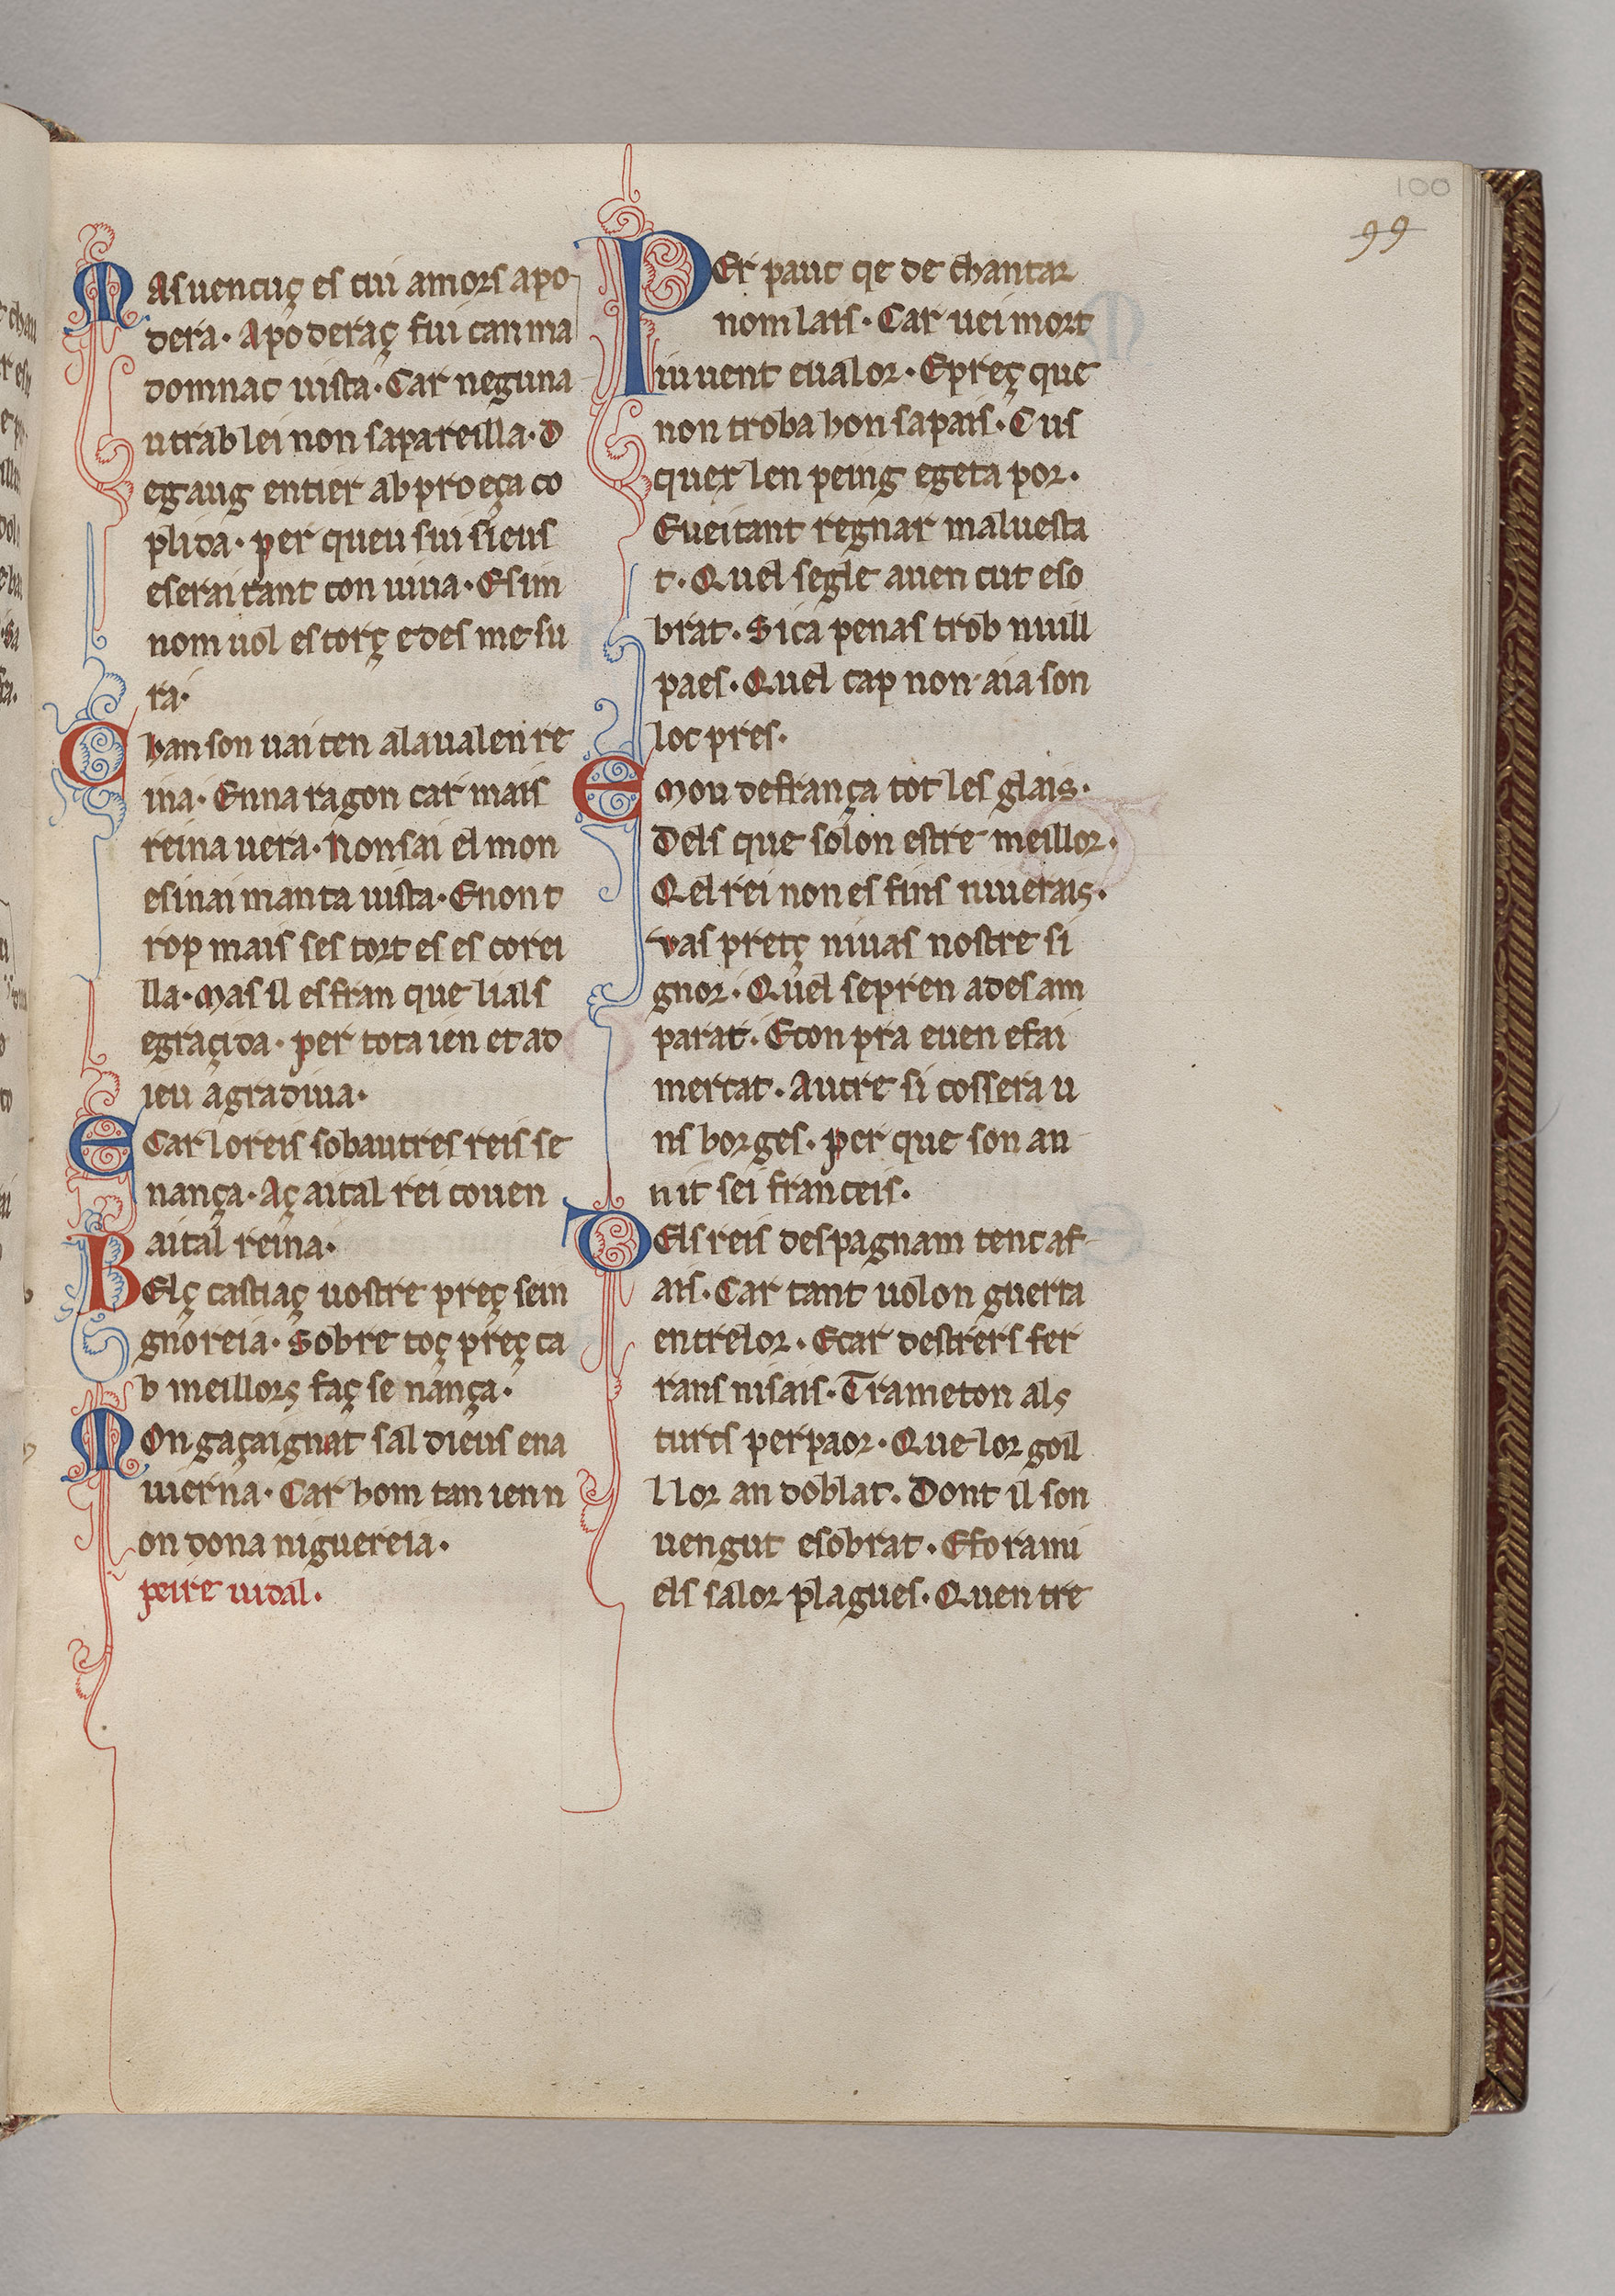 100
99
Masuencuç es cui amors apo
dera· Apoderaç fui can ma
domnac uista· Car neguna
utrab lei non sapareilla· D
egaug entier ab proeça co
plida· per queu sui sieus
eserai tant con uiua· Esim
nom uol estorç edes mesu
ra·
Chanson uai ten alaualen re
ina· Enna ragon car mais
reina uera· Non sai el mon
esinai manta uista· Enon t
rop mais ses tort es es corei
lla· Mas il es fran que lials
egraçida· per tota ien et ad
ieu agradiua·
E Car loreis sobautres reis se
nança· Aç aital rei couen
aital reina·
BElç castiaç uostre preç sein
gnoreia· Sobre toç preç ca
b meillors faç se nança·
MOn gaçaignat sal dieus ena
uierna· Car hom tan ien n
on dona niguereia·
peire uidal·
PEr pauc qe de chantar
nom lais· Car uei mort
iuuent eualor· Epreç que
non troba hon sapais· Cus
quex len peing egeta por·
Eueitant regnar maluesta
t· Quel segle auencut eso
brat· Sica penas trob nuill
paes· Quel cap non aia son
loc pres·
E Mou defrança tot les glais·
Dels que solon estre meillor·
Qel rei non es fins niuerais·
vas pretç niuas nostre si
gnor· Quel sepren adesam
parat· Econpra euen efai
mercat· Autre si cossera u
ns borges· per que son an
nit sei franceis·
DEls reis despagnam tenc af
ais· Car tant uolon guerra
entrelor· Ecar destrers fer
rans nisais· Trameton als
turcs perpaor· Que lor goil
l lor an doblat· Dont il son
uengut esobrat· Efora mi
els salor plagues· Quentre